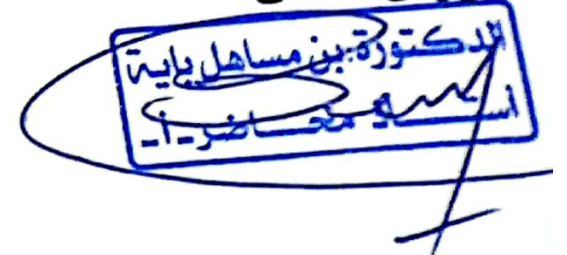 الدكتورة: بن مساهل باية
أستاذ محاضر-أ-